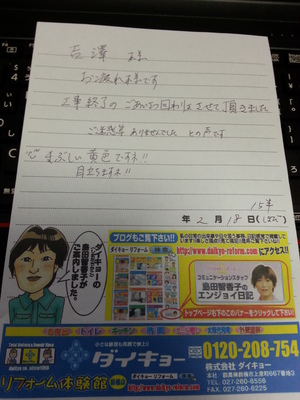 吉澤 様
お疲れ様です
工事終了の ごあいさつ回りをさせて頂きました
ご迷惑等 ありませんでした との声です
まぶしい黄色ですネ!!
目立ちますネ!!
15年
年 2 月 18 日
ブログもご覧下さい!!
http://www.daikyo-reform.com
にアクセス!!
ダイキョー リフォーム
検索
コミュニケーションスタッフ
島田智香子の
エンジョイ日記
トップページ右下のこのバナーをクリックして下さい!
ダイキョーの
島田智香子が
ご案内しました。
トイレ
キッチン
小さな修理も笑顔で完工!
ダイキョー
0120-208-754
株式会社 ダイキョー
リフォーム体験館
TEL.027-280-6556
FAX.027-280-6227